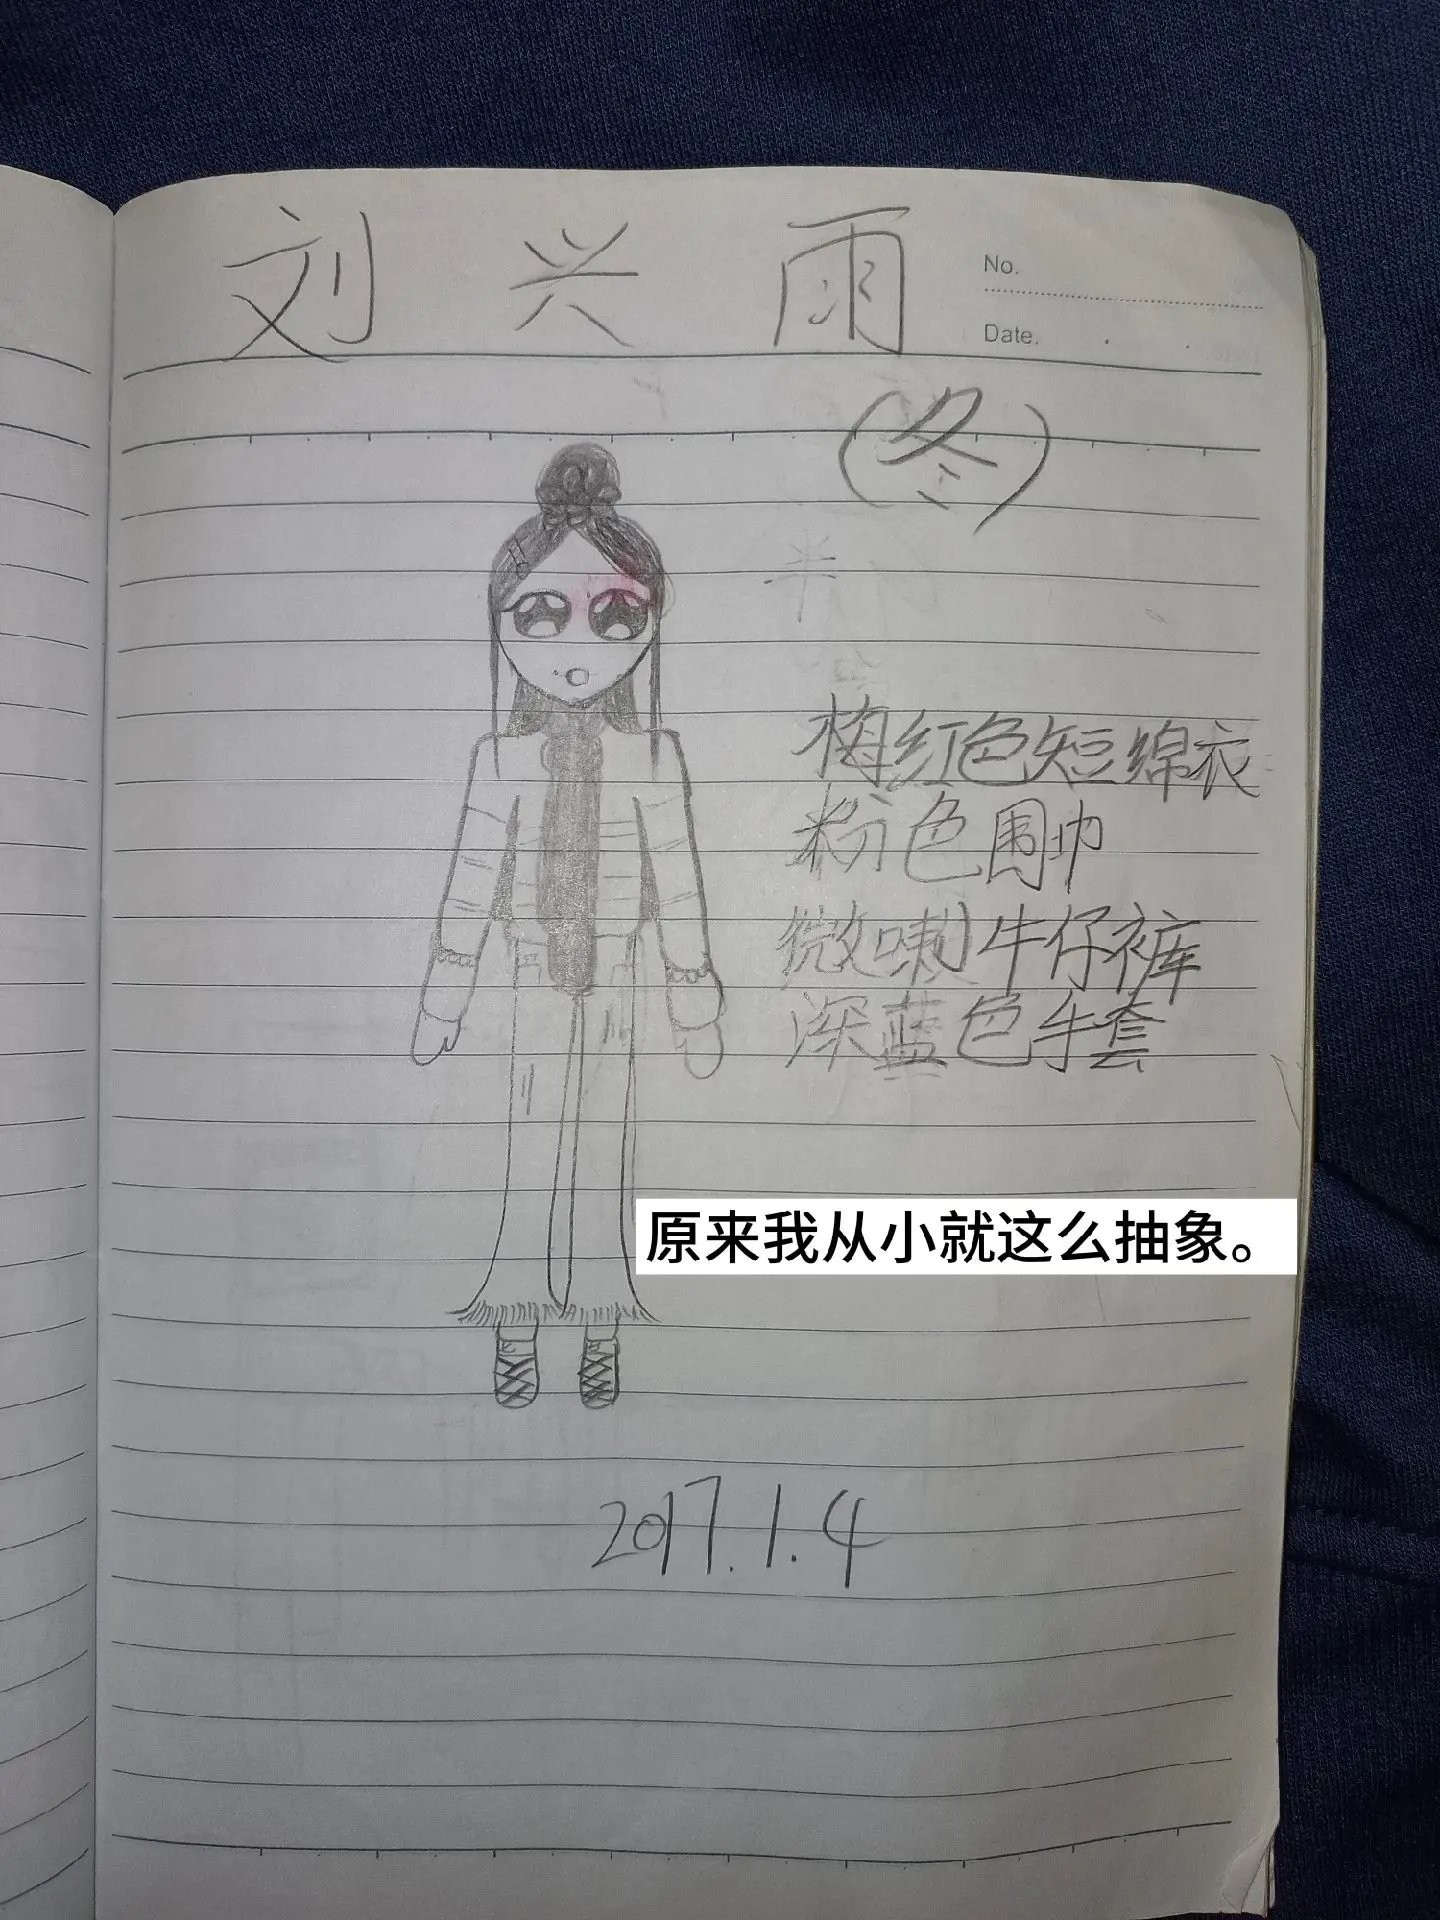 刘兴雨
No.
Date.
(冬)
梅红色短绵衣
粉色围巾
微喇牛仔裤
深蓝色手套
原来我从小就这么抽象。
2017.1.4